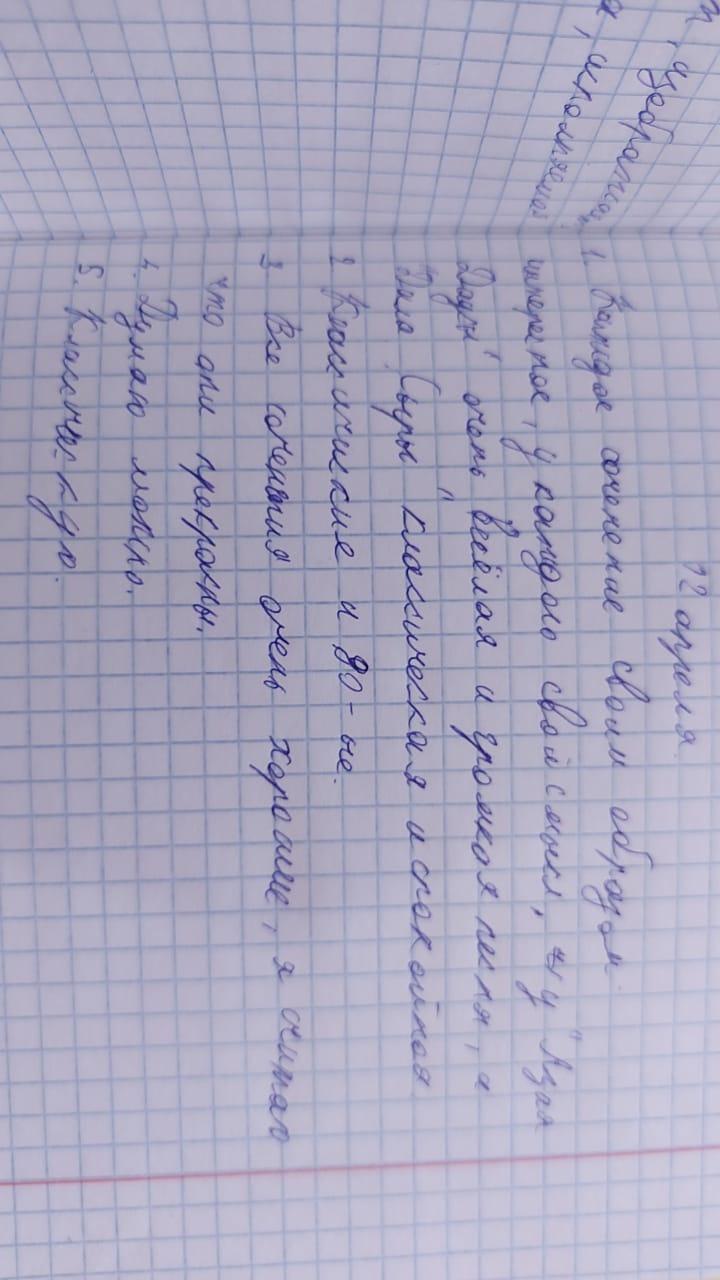 12 апреля.
1. Каждое сочинение своим образом
интересное, у каждого свой смысл, у "Азия
очень весёлая и громкая песня, а
"Дала Сыры" классическая и спокойная
2 Классические и 90-ые.
3 Все сочинения очень хорошие, я считаю
что они прекрасны.
4. Думаю можно.
5.